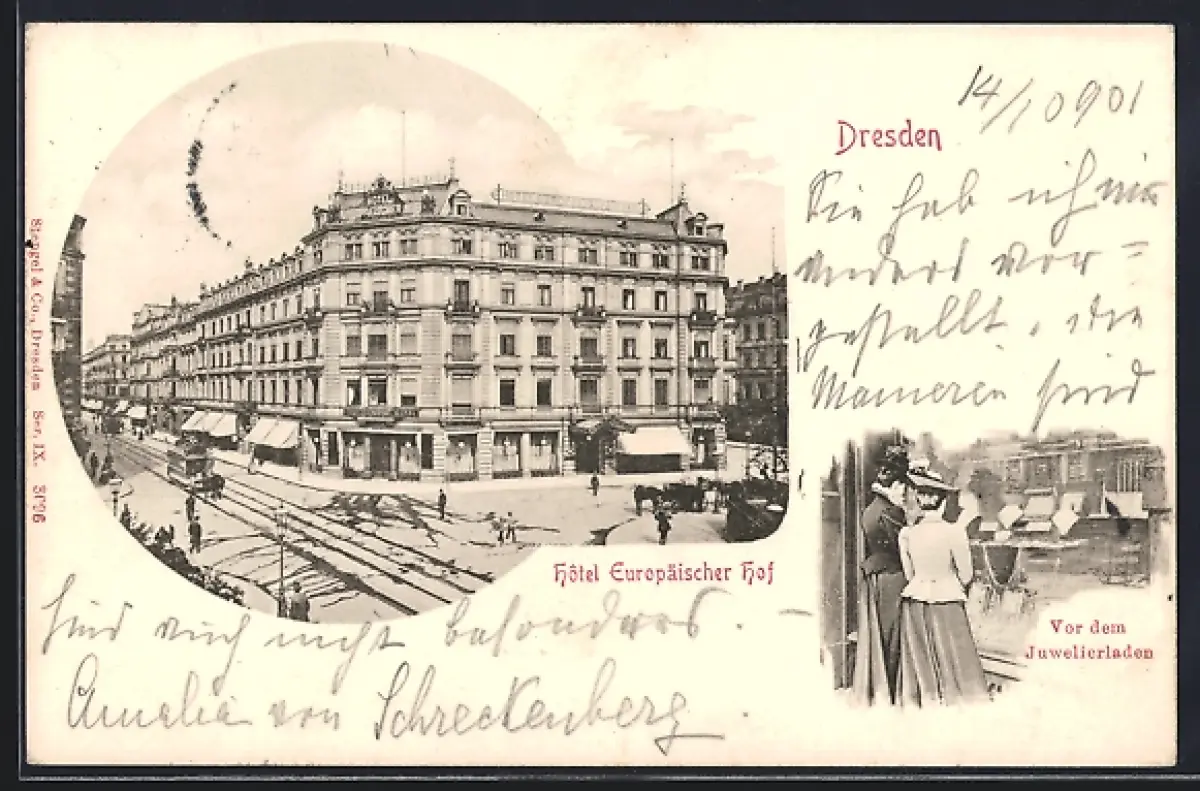 14/10 901
Dresden
Sie hab ich mir
anders vor=
gestellt, die
Manieren sind
Stengel & Co., Dresden Ser. IX. 3096
Hôtel Europäischer Hof
Vor dem
Juwelierladen
sind auch nicht besonders. –
Amalia von Schreckenberg.